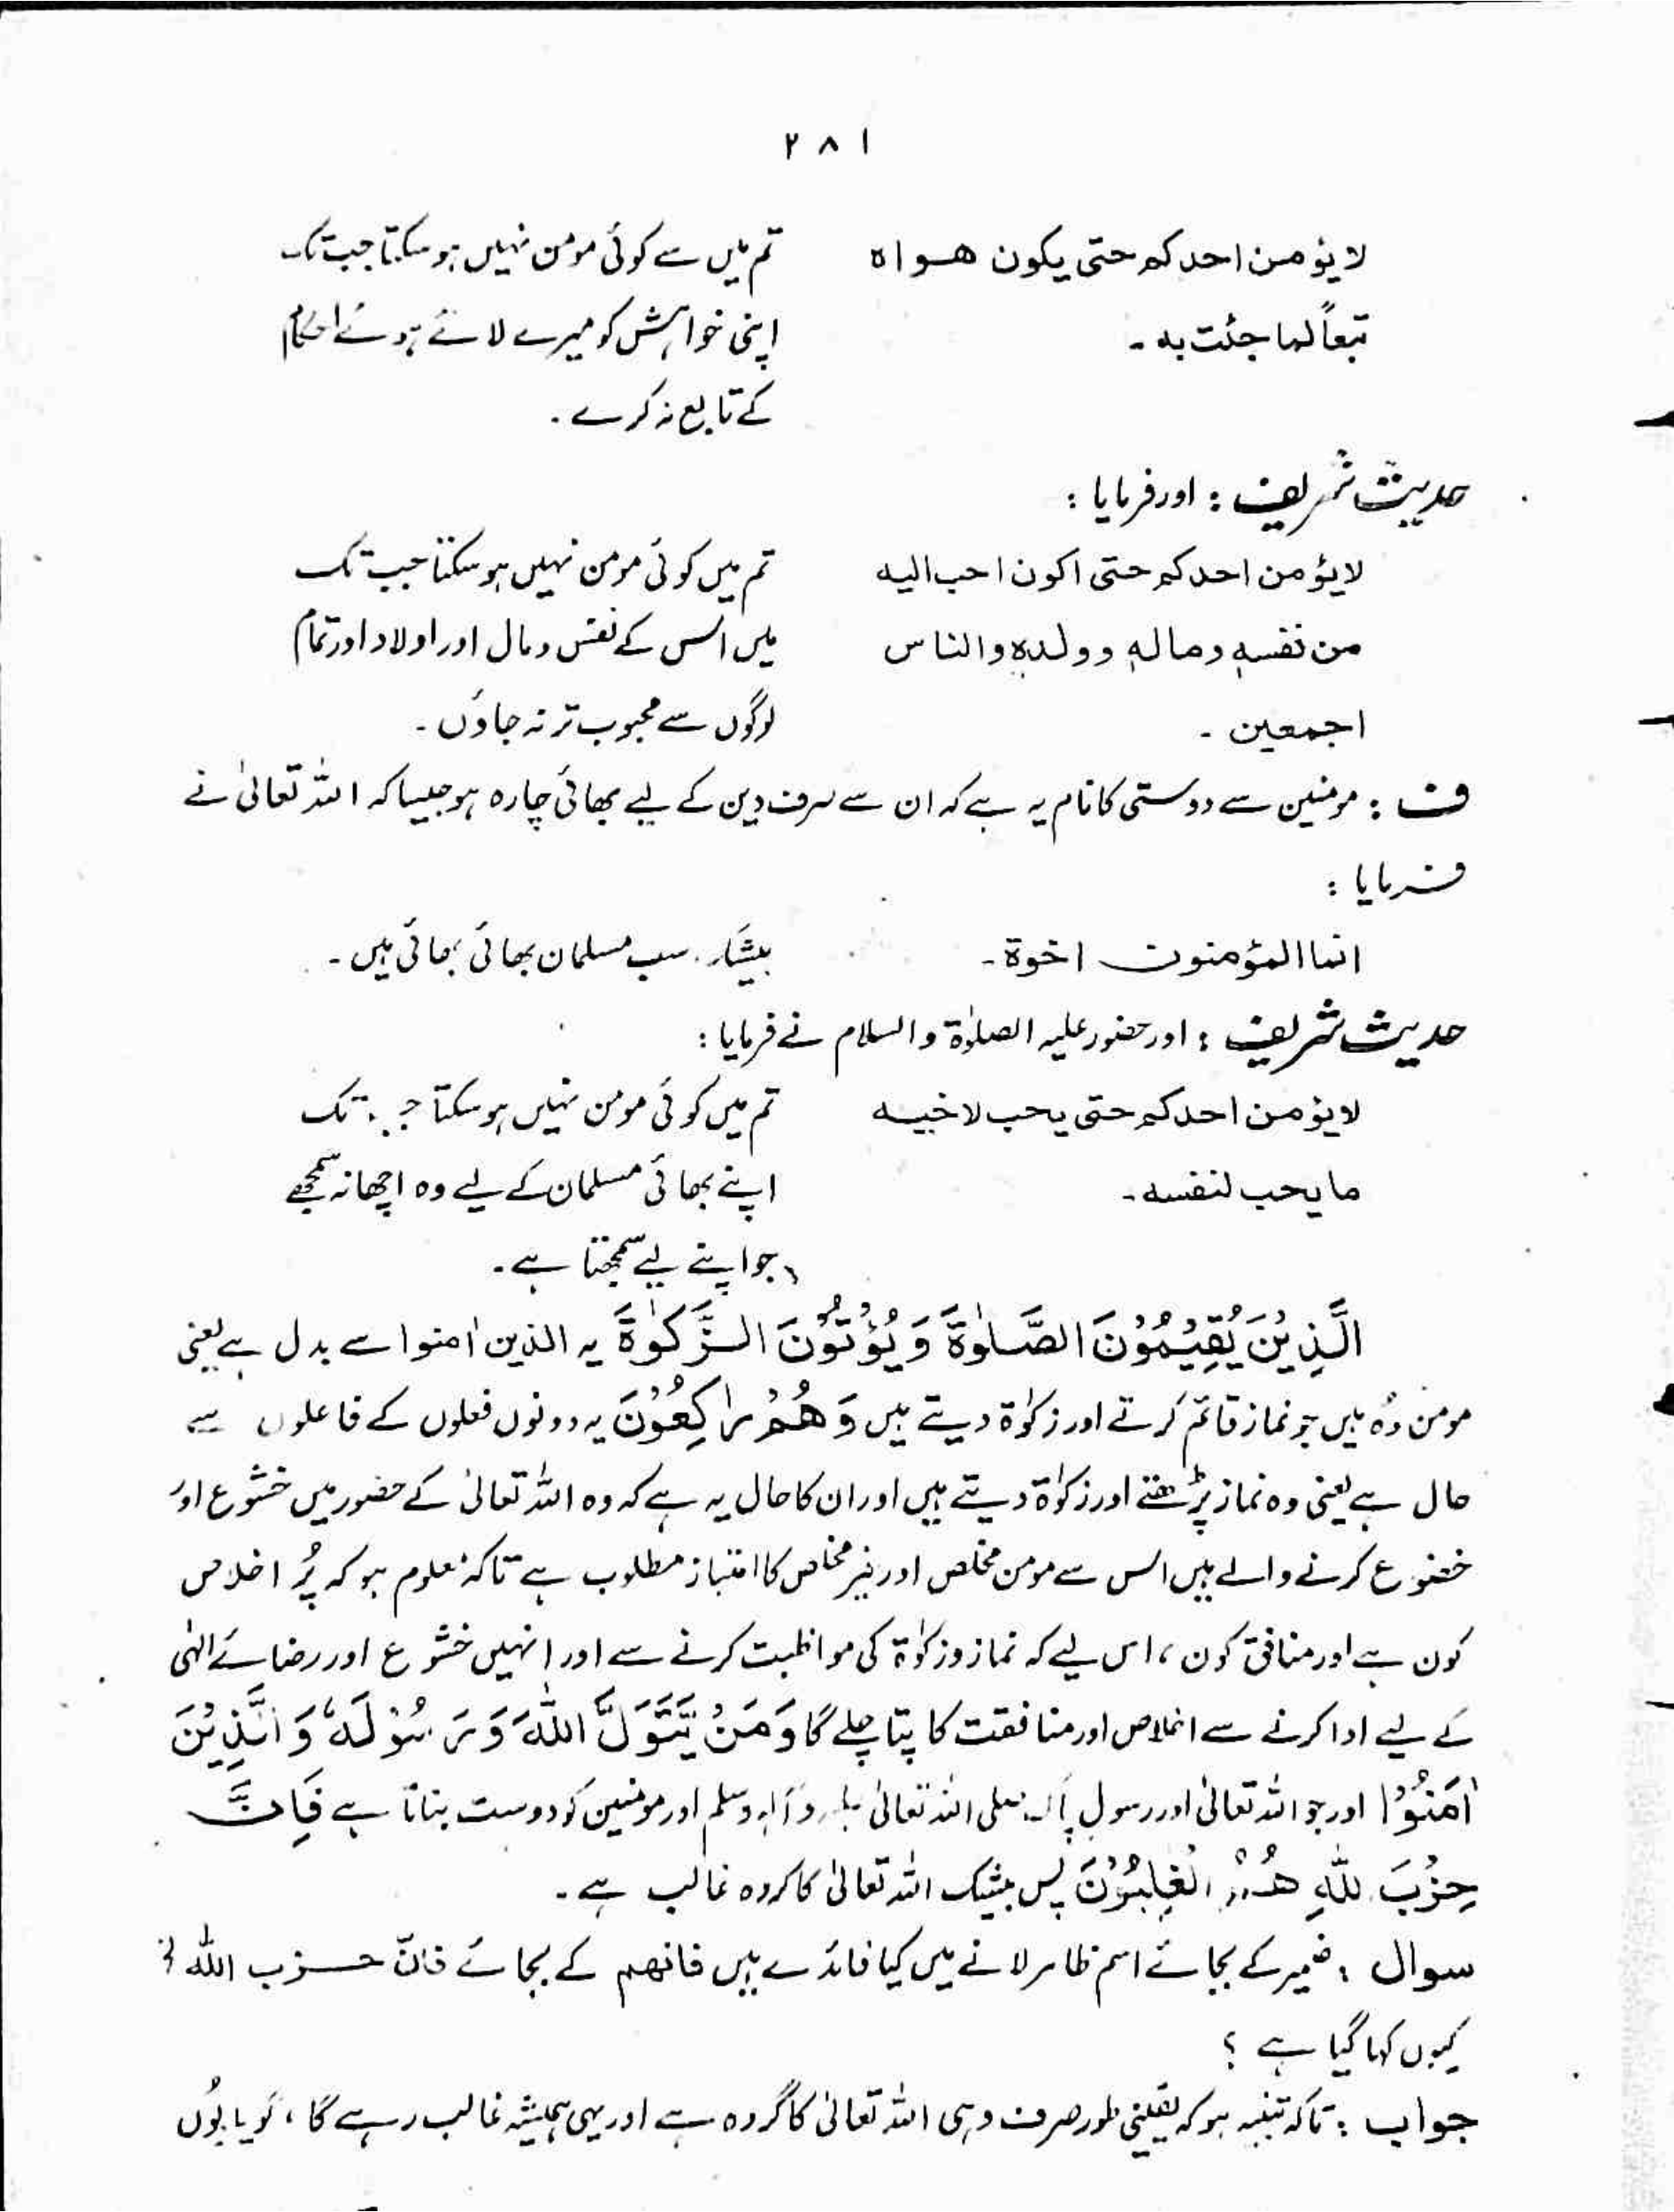 ۲۸۱
لا یؤمن احدکم حتی یکون ھواہ تم میں سے کوئی مومن نہیں ہو سکتا جب تک
تبعاً لما جئت به ۔ اپنی خواہش کو میرے لائے ہوئے احکام
کے تابع نہ کرے ۔
حدیث شریف : اور فرمایا :
لا یؤمن احدکم حتی اکون احب الیہ تم میں کوئی مومن نہیں ہو سکتا جب تک
من نفسہٖ ومالہٖ وولدہٖ والناس میں اس کے نفس و مال اور اولاد اور تمام
اجمعین ۔ لوگوں سے محبوب تر نہ جاؤں ۔
ف : مومنین سے دوستی کا نام یہ ہے کہ ان سے صرف دین کے لیے بھائی چارہ ہو جیسا کہ اللہ تعالیٰ نے
فرمایا :
انما المؤمنون اخوۃ ۔ بیشک سب مسلمان بھائی بھائی ہیں ۔
حدیث شریف : اور حضور علیہ الصلوٰۃ والسلام نے فرمایا :
لا یؤمن احدکم حتی یحب لاخیہ تم میں کوئی مومن نہیں ہو سکتا جب تک
ما یحب لنفسه ۔ اپنے بھائی مسلمان کے لیے وہ اچھا نہ سمجھے
جو اپنے لیے سمجھتا ہے ۔
الَّذِیْنَ یُقِیْمُوْنَ الصَّلوٰةَ وَ یُؤْتُوْنَ الزَّکوٰةَ یہ الذین اٰمنوا سے بدل ہے یعنی
مومن وُہ ہیں جو نماز قائم کرتے اور زکوٰۃ دیتے ہیں وَ هُمْ رٰکِعُوْنَ یہ دونوں فعلوں کے فاعلوں سے
حال ہے یعنی وہ نماز پڑھتے اور زکوٰۃ دیتے ہیں اور ان کا حال یہ ہے کہ وہ اللہ تعالیٰ کے حضور میں خشوع اور
خضوع کرنے والے ہیں اس سے مومن مخلص اور غیر مخلص کا امتیاز مطلوب ہے تاکہ معلوم ہو کہ پُر اخلاص
کون ہے اور منافق کون ، اس لیے کہ نماز و زکوٰۃ کی مواظبت کرنے سے اور انہیں خشوع اور رضائے الٰہی
کے لیے ادا کرنے سے اخلاص اور منافقت کا پتا چلے گا وَ مَنْ یَّتَوَلَّ اللّٰهَ وَ رَسُوْلَهٗ وَ الَّذِیْنَ
اٰمَنُوْا اور جو اللہ تعالیٰ اور رسول پاک صلی اللہ تعالیٰ علیہ وآلہ وسلم اور مومنین کو دوست بناتا ہے فَاِنَّ
حِزْبَ اللّٰهِ هُمُ الْغٰلِبُوْنَ پس بیشک اللہ تعالیٰ کا گروہ غالب ہے ۔
سوال : ضمیر کے بجائے اسم ظاہر لانے میں کیا فائدے ہیں فانھم کے بجائے فانّ حزب اللہ
کیوں کہا گیا ہے ؟
جواب : تاکہ تنبیہ ہو کہ یقینی طور صرف وہی اللہ تعالیٰ کا گروہ ہے اور یہی ہمیشہ غالب رہے گا ، گویا یُوں